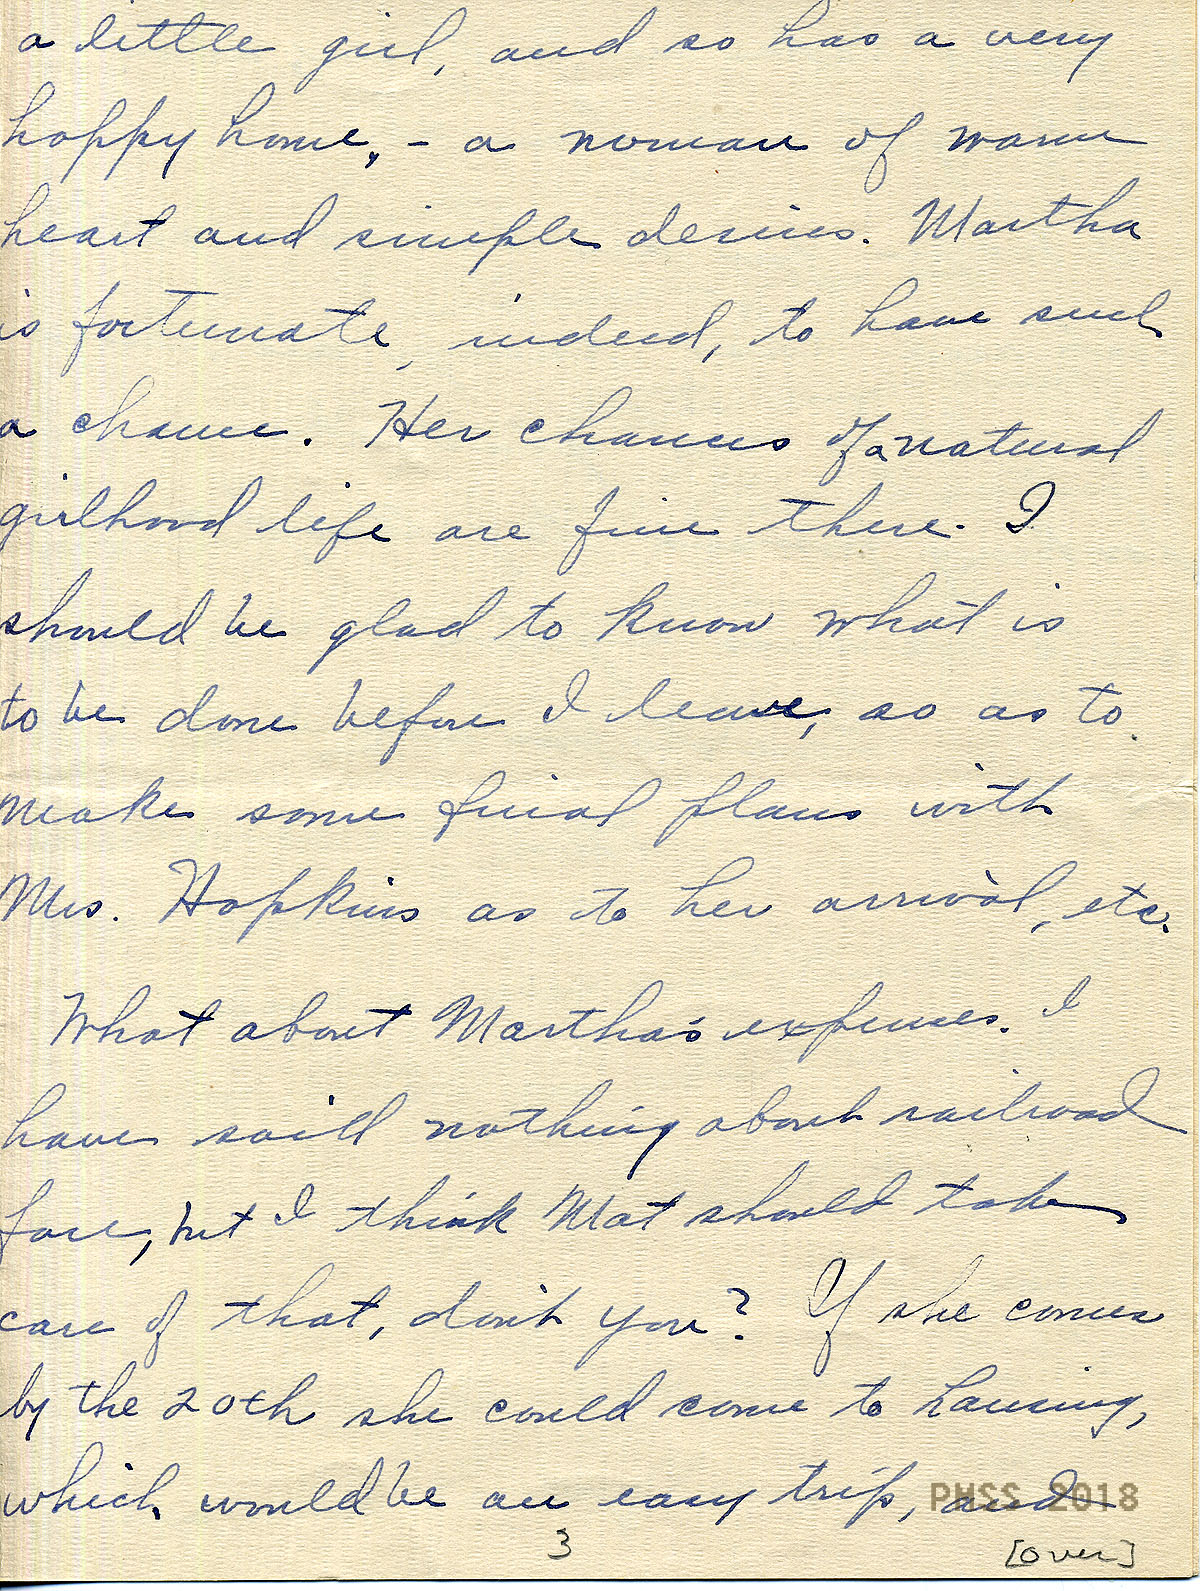 a little girl, and so has a very
happy home, - a woman of warm
heart and simple desires. Martha
is fortunate, indeed, to have such
a chance. Her chances of a natural
girlhood life are fine there. I
should be glad to know what is
to be done before I leave, so as to
make some final plans with
Mrs. Hopkins as to her arrival, etc.
What about Martha's expenses. I
have said nothing about railroad
fare, but I think Mat should take
care of that, don't you? If she comes
by the 20th she could come to Lansing,
which would be an easy trip, and
PMSS 2018
3
[over]